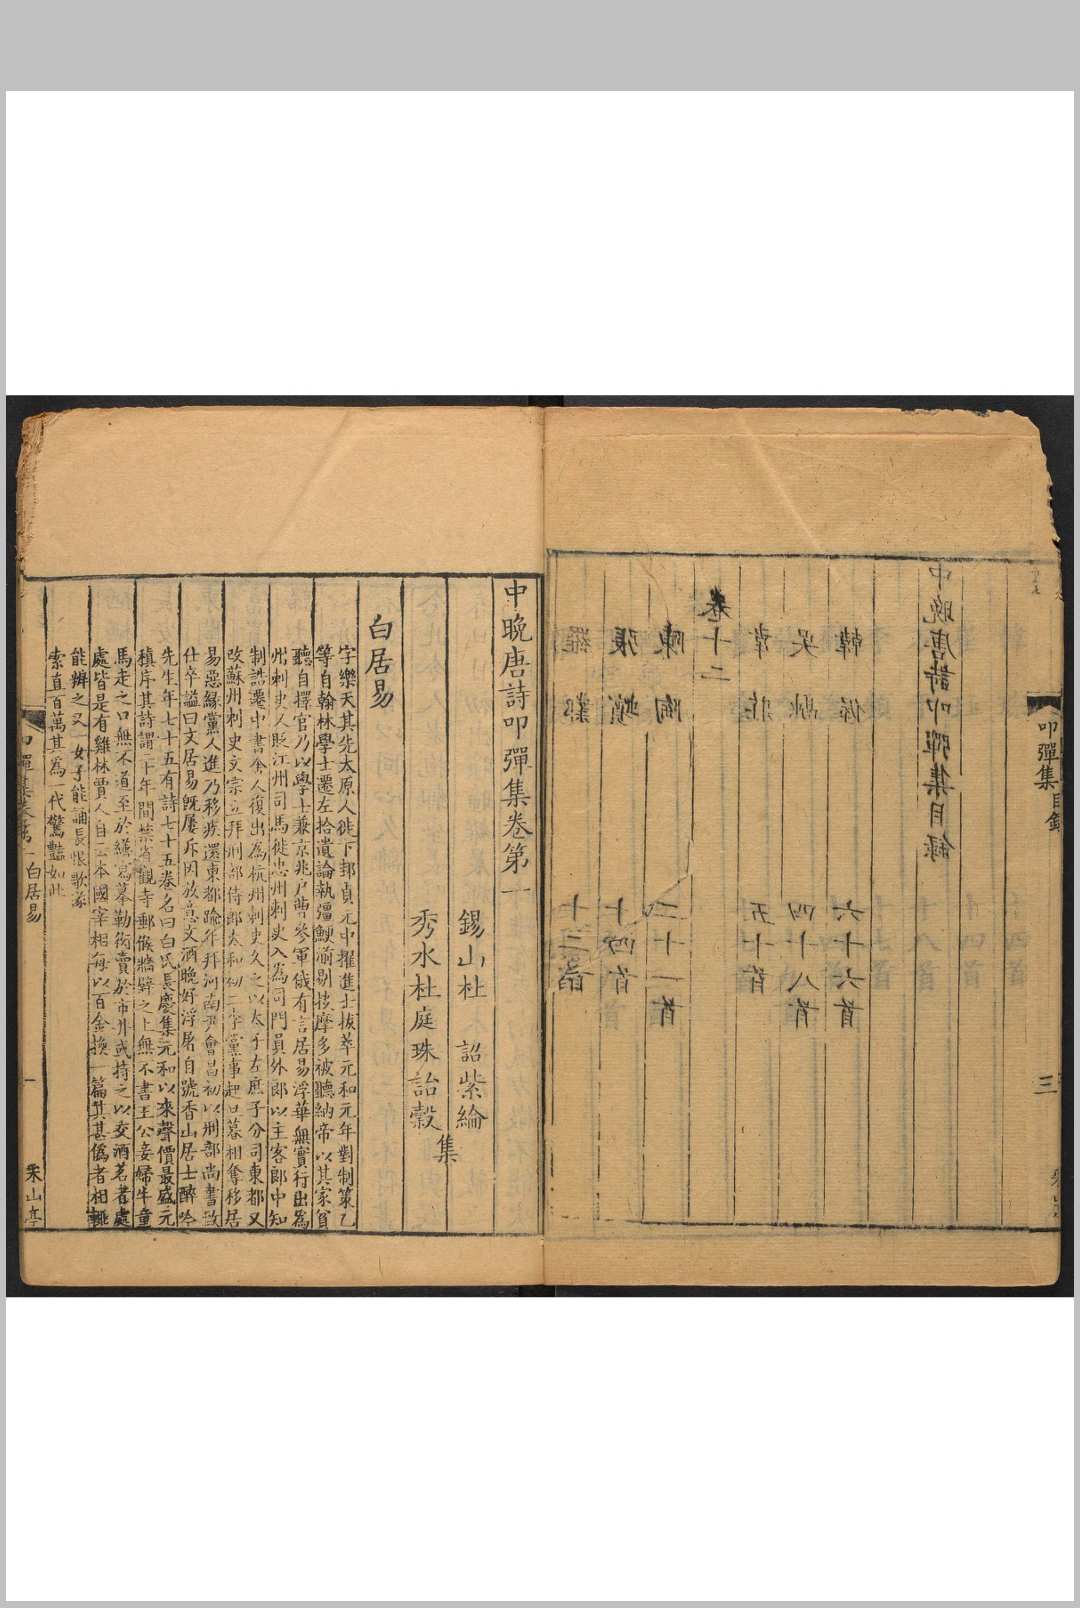 叩彈集
目錄
三
卷十二
中晚唐詩叩彈集目錄
韓偓
六十六首
吳融
四十八首
韋莊
五十首
陳陶
二十一首
張蠙
十四首
羅鄴
十二首
中晚唐詩叩彈集卷第一
錫山杜 詔紫綸
秀水杜庭珠詒穀
集
白居易
字樂天其先太原人徙下邽貞元中擢進士拔萃元和元年對制策乙
等自翰林學士遷左拾遺論執彊鯁湔剔抉摩多被聽納帝以其家貧
聽自擇官乃以學士兼京兆戶曹參軍俄有言居易浮華無實行出為
州刺史人貶江州司馬徙忠州刺史入為司門員外郎以主客郎中知
制誥遷中書舍人復出為杭州刺史久之以太子左庶子分司東都又
改蘇州刺史文宗立拜刑部侍郎太和初二李黨事起日暮相奪移居
易惡緣黨人進乃移疾還東都踰年拜河南尹會昌初以刑部尚書致
仕卒謚曰文居易既屢斥因放意文酒晚好浮屠自號香山居士醉吟
先生年七十五有詩七十五卷名曰白氏長慶集元和以來聲價最盛元
稹序其詩謂二十年間禁省觀寺郵候牆壁之上無不書王公妾婦牛童
馬走之口無不道至於繕寫摹勒衒賣於市井或持之以交酒茗者處
處皆是有雞林賈人自云本國宰相每以百金換一篇其甚偽者相輒
能辨之又一女子能誦長恨歌遂
索直百萬其為一代驚豔如此
叩彈集卷第一
白居易
一
采山亭